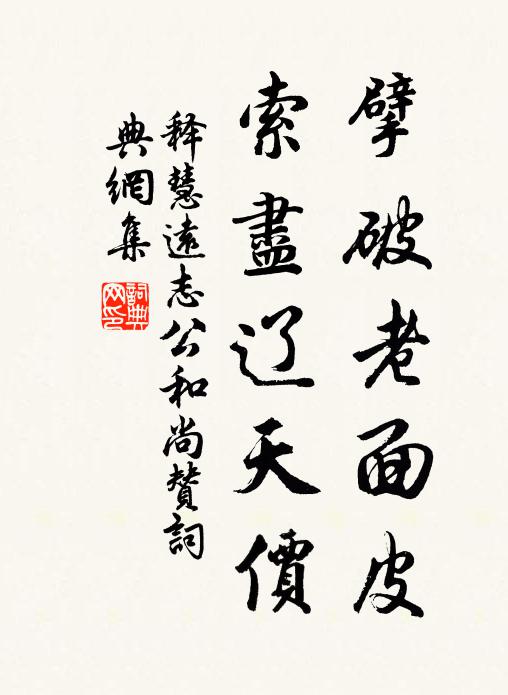 擘破老面皮
索盡辽天價
释慧遠志公和尚贊詞
典網集
詞典网印